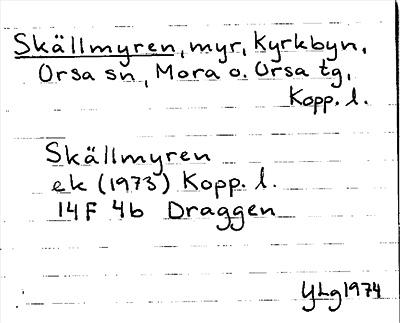 Skällmyren, myr, Kyrkbyn,
Orsa sn, Mora o. Orsa tg,
Kopp. l.
Skällmyren
ek (1973) Kopp. l.
14F 4b Draggen
YLg 1974